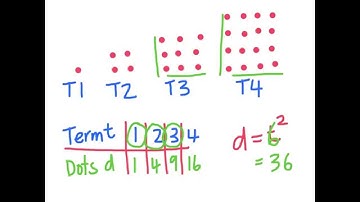 T1 T2 T3 T4
Term t 1 2 3 4
Dots d 1 4 9 16
d = t²
= 36